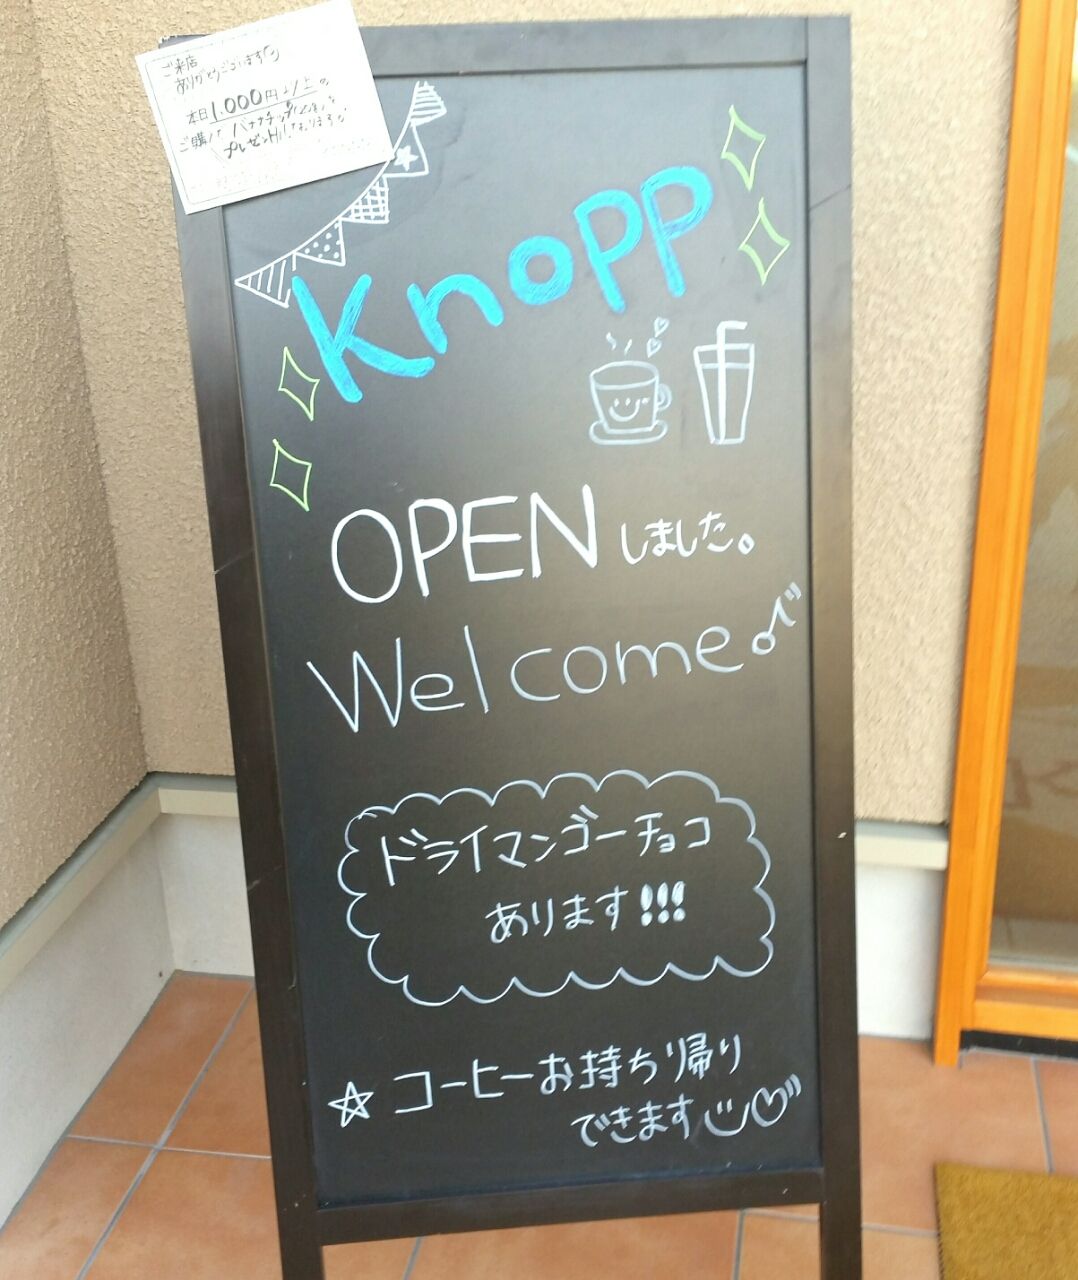 ご来店
ありがとうございます
本日1,000円以上の
ご購入で バナナチップ
プレゼントしております
Knopp
OPENしました。
Welcome♪
ドライマンゴーチョコ
あります!!!
☆コーヒーお持ち帰り
できます